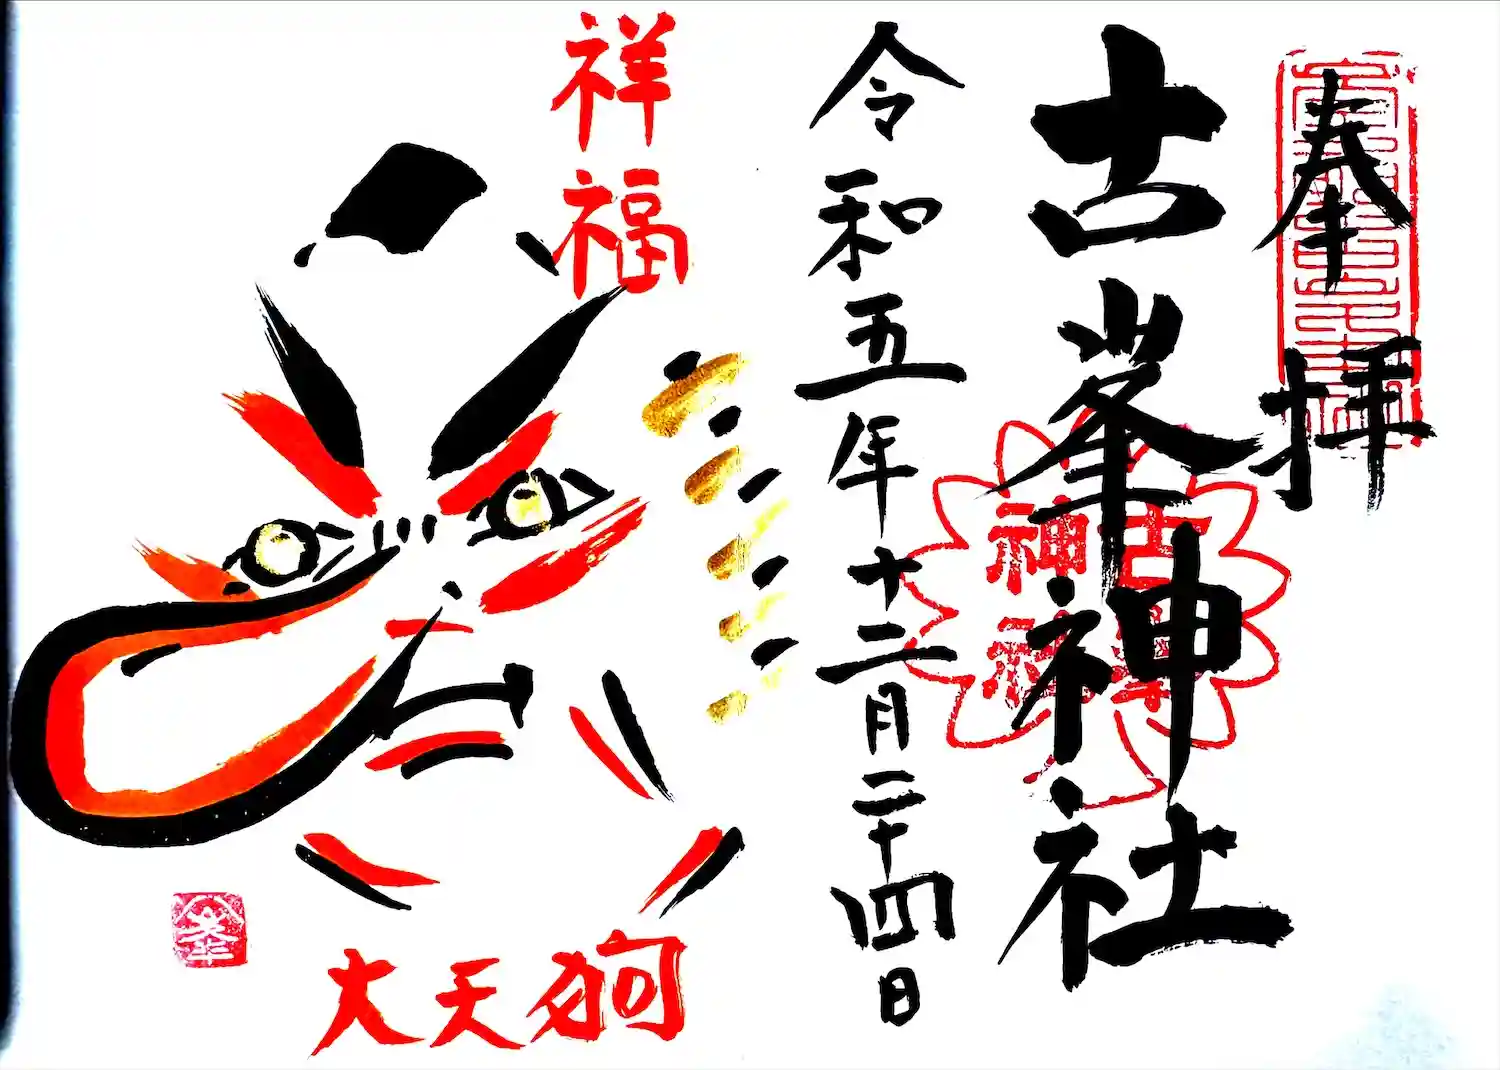 奉拝
古峯神社
古峯
神社
令和五年十二月二十四日
祥福
大天狗